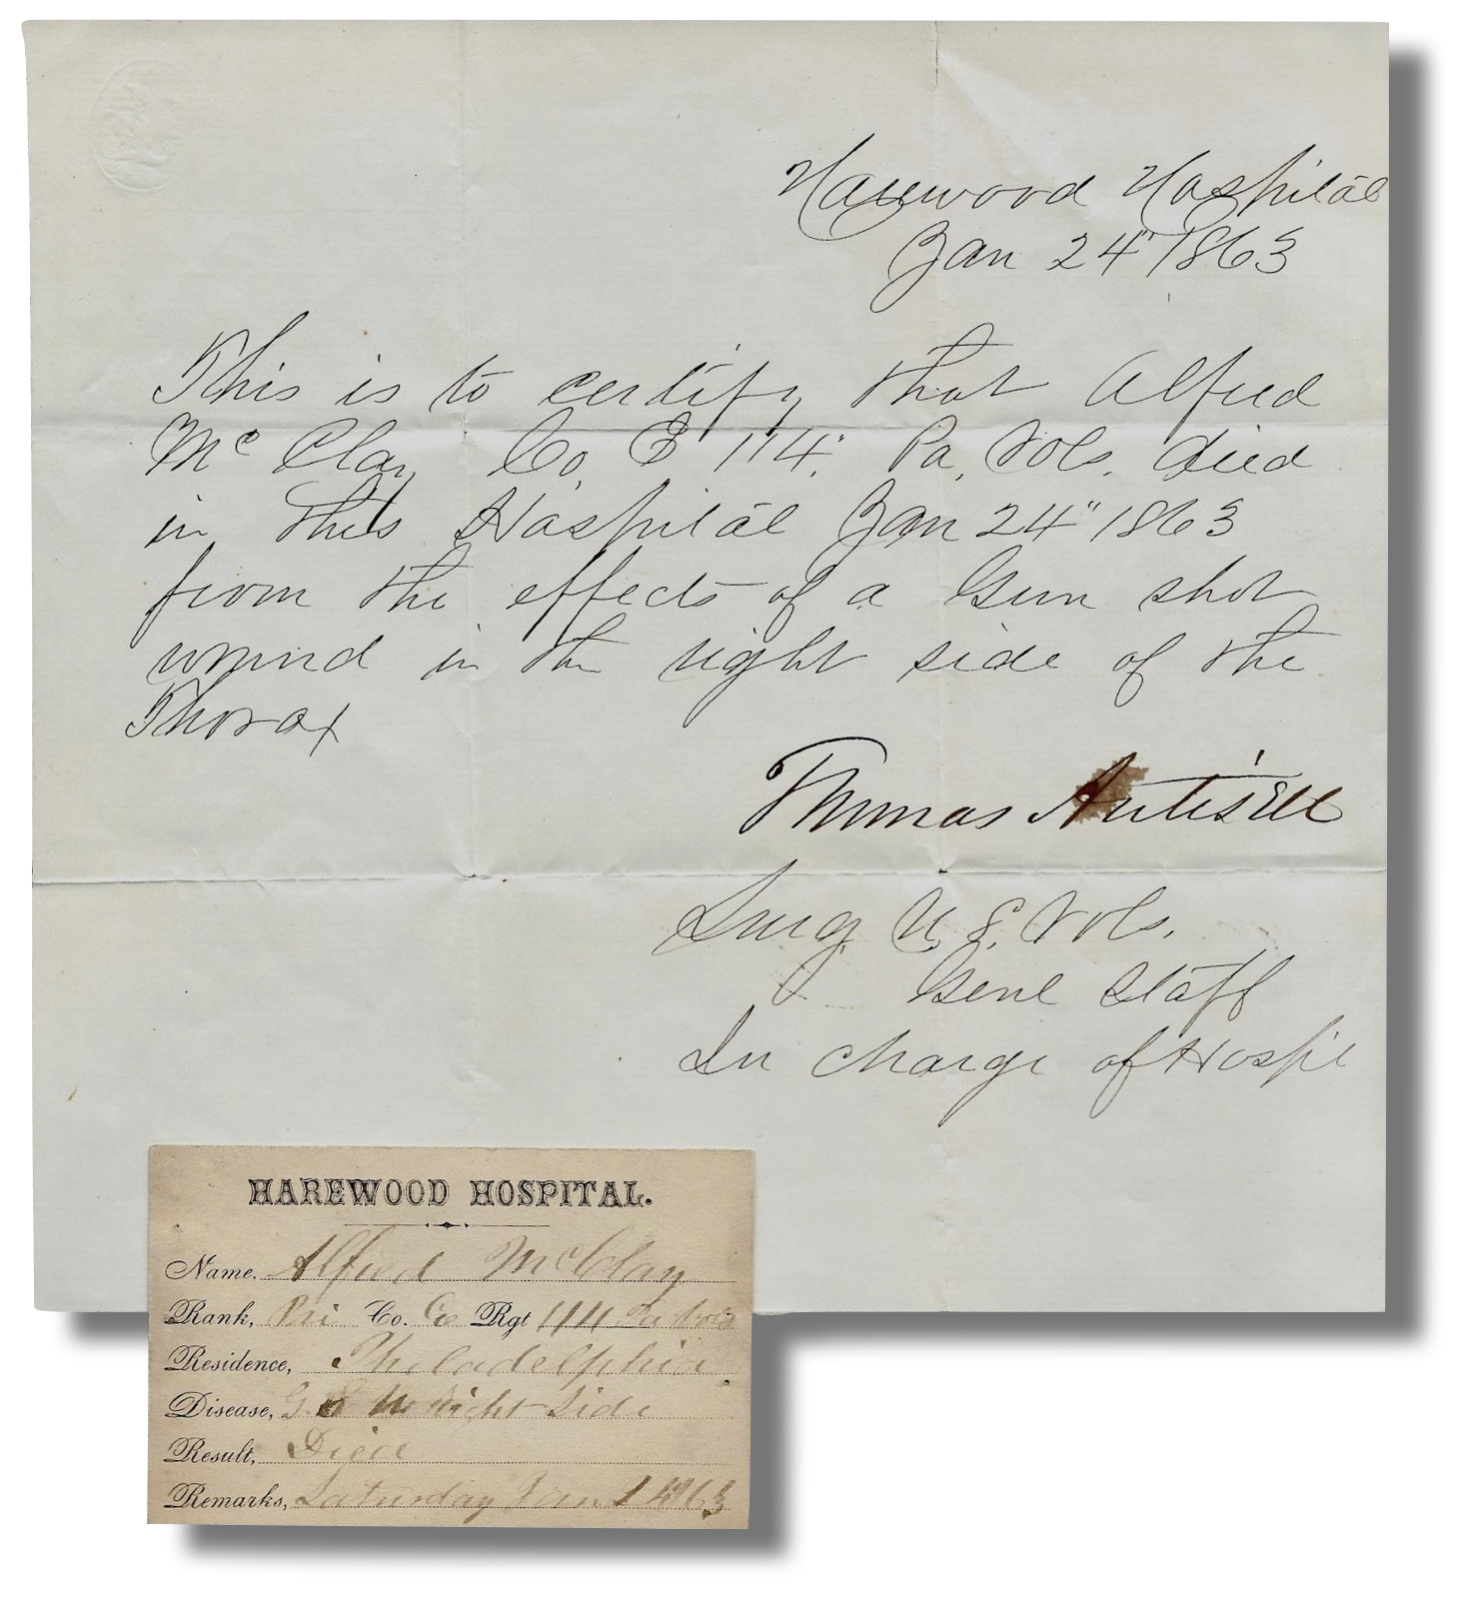 Harewood Hospital
Jan 24" 1863
This is to certify that Alfred
Mc Clay Co. E 114" Pa. Vols. died
in this Hospital Jan 24" 1863
from the effects of a Gun shot
wound in the right side of the
Thorax
Thomas Antisell
Surg. U. S. Vols.
Genl Staff
In charge of Hospl
HAREWOOD HOSPITAL.
Name, Alfred McClay
Rank, Pri Co. Rgt 114 Pa Vols
Residence, Philadelphia
Disease, G. S. W. Right Side
Result, Died
Remarks, Saturday Jan 24" 63